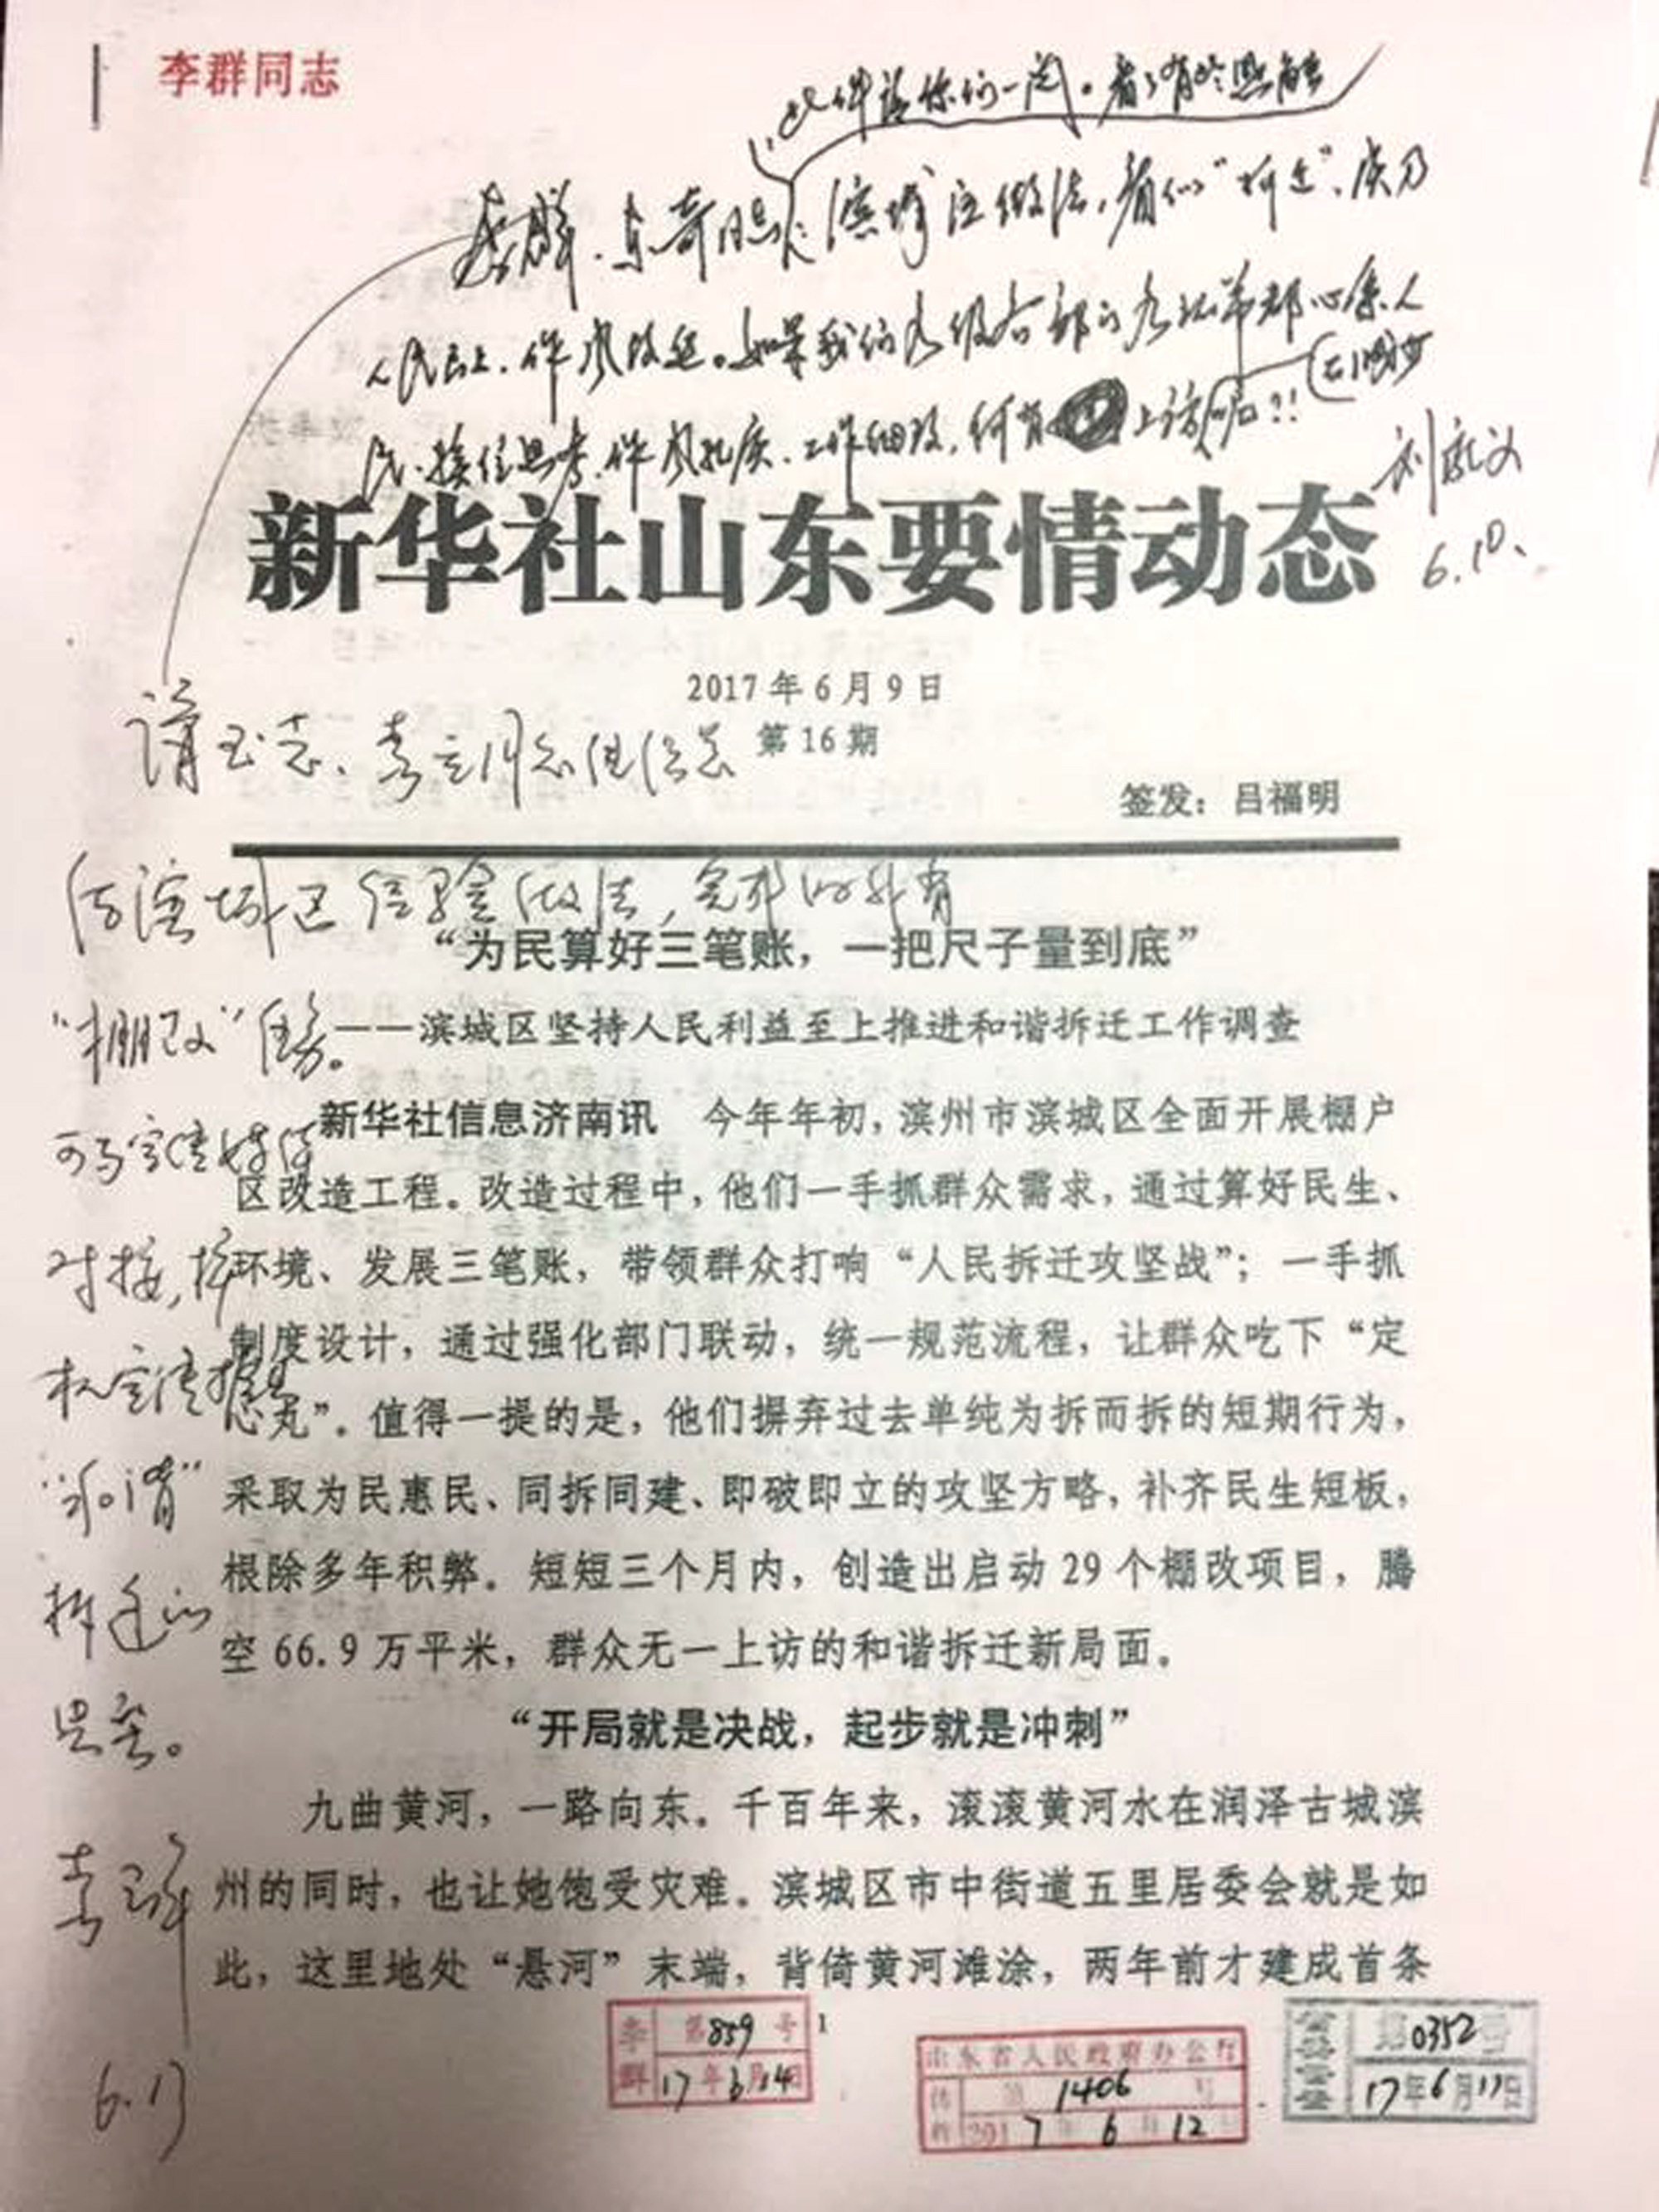 李群同志
此件请你们一阅。看了有些思触
李群、东奇同志：滨城区做法，看似“拆迁”，实乃
人民至上，作风改进。如果我们各级各部门
民、换位思考、作风扎实、工作细致，何有上访呢？！
6.10.
新华社山东要情动态
2017年6月9日
第16期
签发：吕福明
请玉志、
滨城区经验做法，完
“棚改”任务。
“为民算好三笔账，一把尺子量到底”
——滨城区坚持人民利益至上推进和谐拆迁工作调查
可与宣传媒体
对接，
“和谐”
拆迁的
思路。
6.13
新华社信息济南讯 今年年初，滨州市滨城区全面开展棚户
区改造工程。改造过程中，他们一手抓群众需求，通过算好民生、
环境、发展三笔账，带领群众打响“人民拆迁攻坚战”；一手抓
制度设计，通过强化部门联动，统一规范流程，让群众吃下“定
心丸”。值得一提的是，他们摒弃过去单纯为拆而拆的短期行为，
采取为民惠民、同拆同建、即破即立的攻坚方略，补齐民生短板，
根除多年积弊。短短三个月内，创造出启动29个棚改项目，腾
空66.9万平米，群众无一上访的和谐拆迁新局面。
“开局就是决战，起步就是冲刺”
九曲黄河，一路向东。千百年来，滚滚黄河水在润泽古城滨
州的同时，也让她饱受灾难。滨城区市中街道五里居委会就是如
此，这里地处“悬河”末端，背倚黄河滩涂，两年前才建成首条
1
李群 第859号
17年6月14日
山东省人民政府办公厅
第1406号
2017年6月12
第0352号
17年6月11日